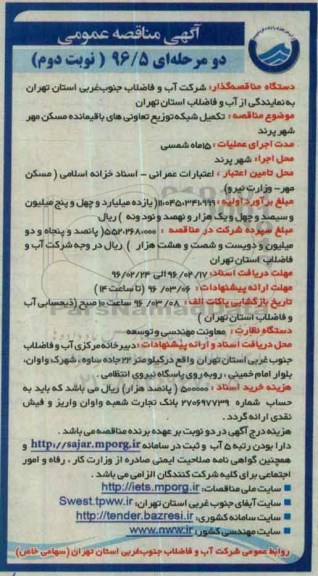 آگهی مناقصه عمومی
دو مرحله‌ای ۹۶/۵ ( نوبت دوم)
دستگاه مناقصه‌گذار: شرکت آب و فاضلاب جنوب‌غربی استان تهران
به نمایندگی از آب و فاضلاب استان تهران
موضوع مناقصه : تکمیل شبکه توزیع تعاونی های باقیمانده مسکن مهر
شهر پرند
مدت اجرای عملیات : ۱۵ماه شمسی
محل اجرا: شهر پرند
محل تامین اعتبار : اعتبارات عمرانی - اسناد خزانه اسلامی ( مسکن
مهر- وزارت نیرو)
مبلغ برآورد اولیه : ۱۱،۰۴۵،۳۴۱،۰۹۹ (یازده میلیارد و چهل و پنج میلیون
و سیصد و چهل و یک هزار و نهصد و نود ونه ) ریال
مبلغ سپرده شرکت در مناقصه : ۵۵۲،۲۶۸،۰۰۰ ( پانصد و پنجاه و دو
میلیون و دویست و شصت و هشت هزار ) ریال در وجه شرکت آب و
فاضلاب استان تهران
مهلت دریافت اسناد: ۹۶/۰۲/۱۷ الی ۹۶/۰۲/۲۴
مهلت ارائه پیشنهادات : ۹۶/۰۳/۰۶ (تا ساعت ۱۴ )
تاریخ بازگشایی پاکات الف : ۹۶/۰۳/۰۸ ساعت ۱۰ صبح (ذیحسابی آب
و فاضلاب استان تهران )
دستگاه نظارت : معاونت مهندسی و توسعه
محل دریافت اسناد و ارائه پیشنهادات : دبیرخانه مرکزی آب و فاضلاب
جنوب غربی استان تهران واقع در کیلومتر ۲۲ جاده ساوه ، شهرک واوان،
بلوار امام خمینی ، روبه روی پاسگاه نیروی انتظامی .
هزینه خرید اسناد : ۵۰۰،۰۰۰ ( پانصد هزار) ریال می باشد که باید به
حساب شماره ۲۷۰۶۹۷۷۳۹ بانک تجارت شعبه واوان واریز و فیش
نقدی ارائه گردد .
هزینه درج آگهی در دو نوبت بر عهده برنده مناقصه می باشد .
دارا بودن رتبه ۵ آب و ثبت در سامانه http://sajar.mporg.ir و
همچنین گواهی نامه صلاحیت ایمنی صادره از وزارت کار ، رفاه و امور
اجتماعی برای کلیه شرکت کنندگان الزامی می باشد .
سایت ملی مناقصات: http://iets.mporg.ir
سایت آبفای جنوب غربی استان تهران: Swest.tpww.ir
سایت سامانه کشوری: http://tender.bazresi.ir
سایت مهندسی کشور: www.nww.ir
روابط عمومی شرکت آب و فاضلاب جنوب‌غربی استان تهران (سهامی خاص)